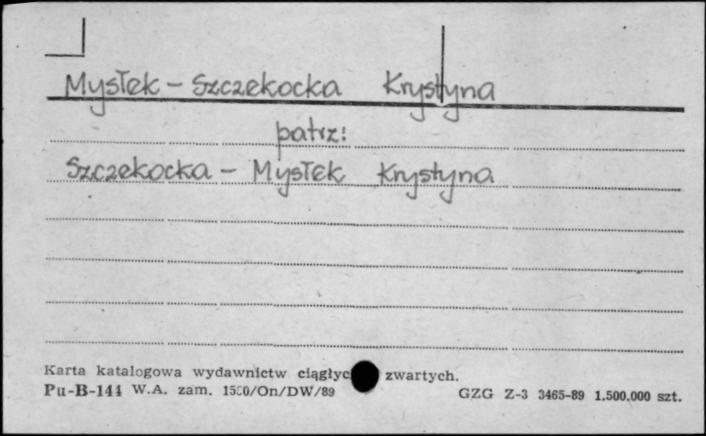 Mysłek - Szczekocka Krystyna
patrz:
Szczekocka - Mysłek Krystyna
Karta katalogowa wydawnictw ciągłyc zwartych.
Pu-B-144 W.A. zam. /On/DW/89 GZG Z-3 3465-89 1.500.000 szt.